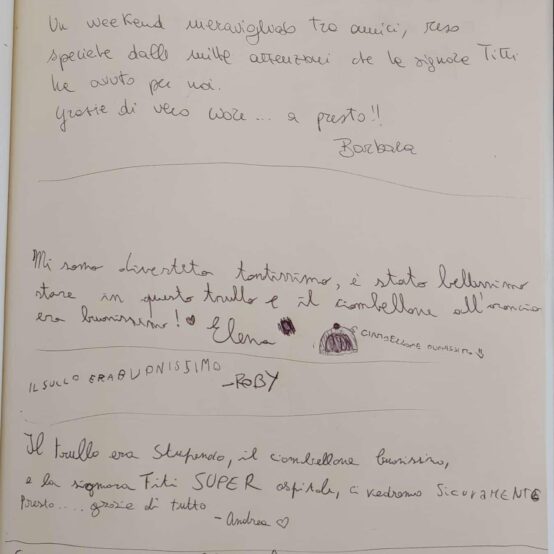 Un weekend meraviglioso tra amici, reso
speciale dalle mille attenzioni che la signora Titti
ha avuto per noi.
Grazie di vero cuore... a presto!!
Barbara
Mi sono divertita tantissimo, è stato bellissimo
stare in questo trullo e il ciambellone all'arancia
era buonissimo! ♡ Elena
CIAMBELLONE BUONISSIMO
IL SULLO ERA BUONISSIMO
-ROBY
Il trullo era stupendo, il ciambellone buonissimo,
e la signora Titi SUPER ospitale, ci vedremo SICURAMENTE
Presto..... grazie di tutto
- Andrea ♡